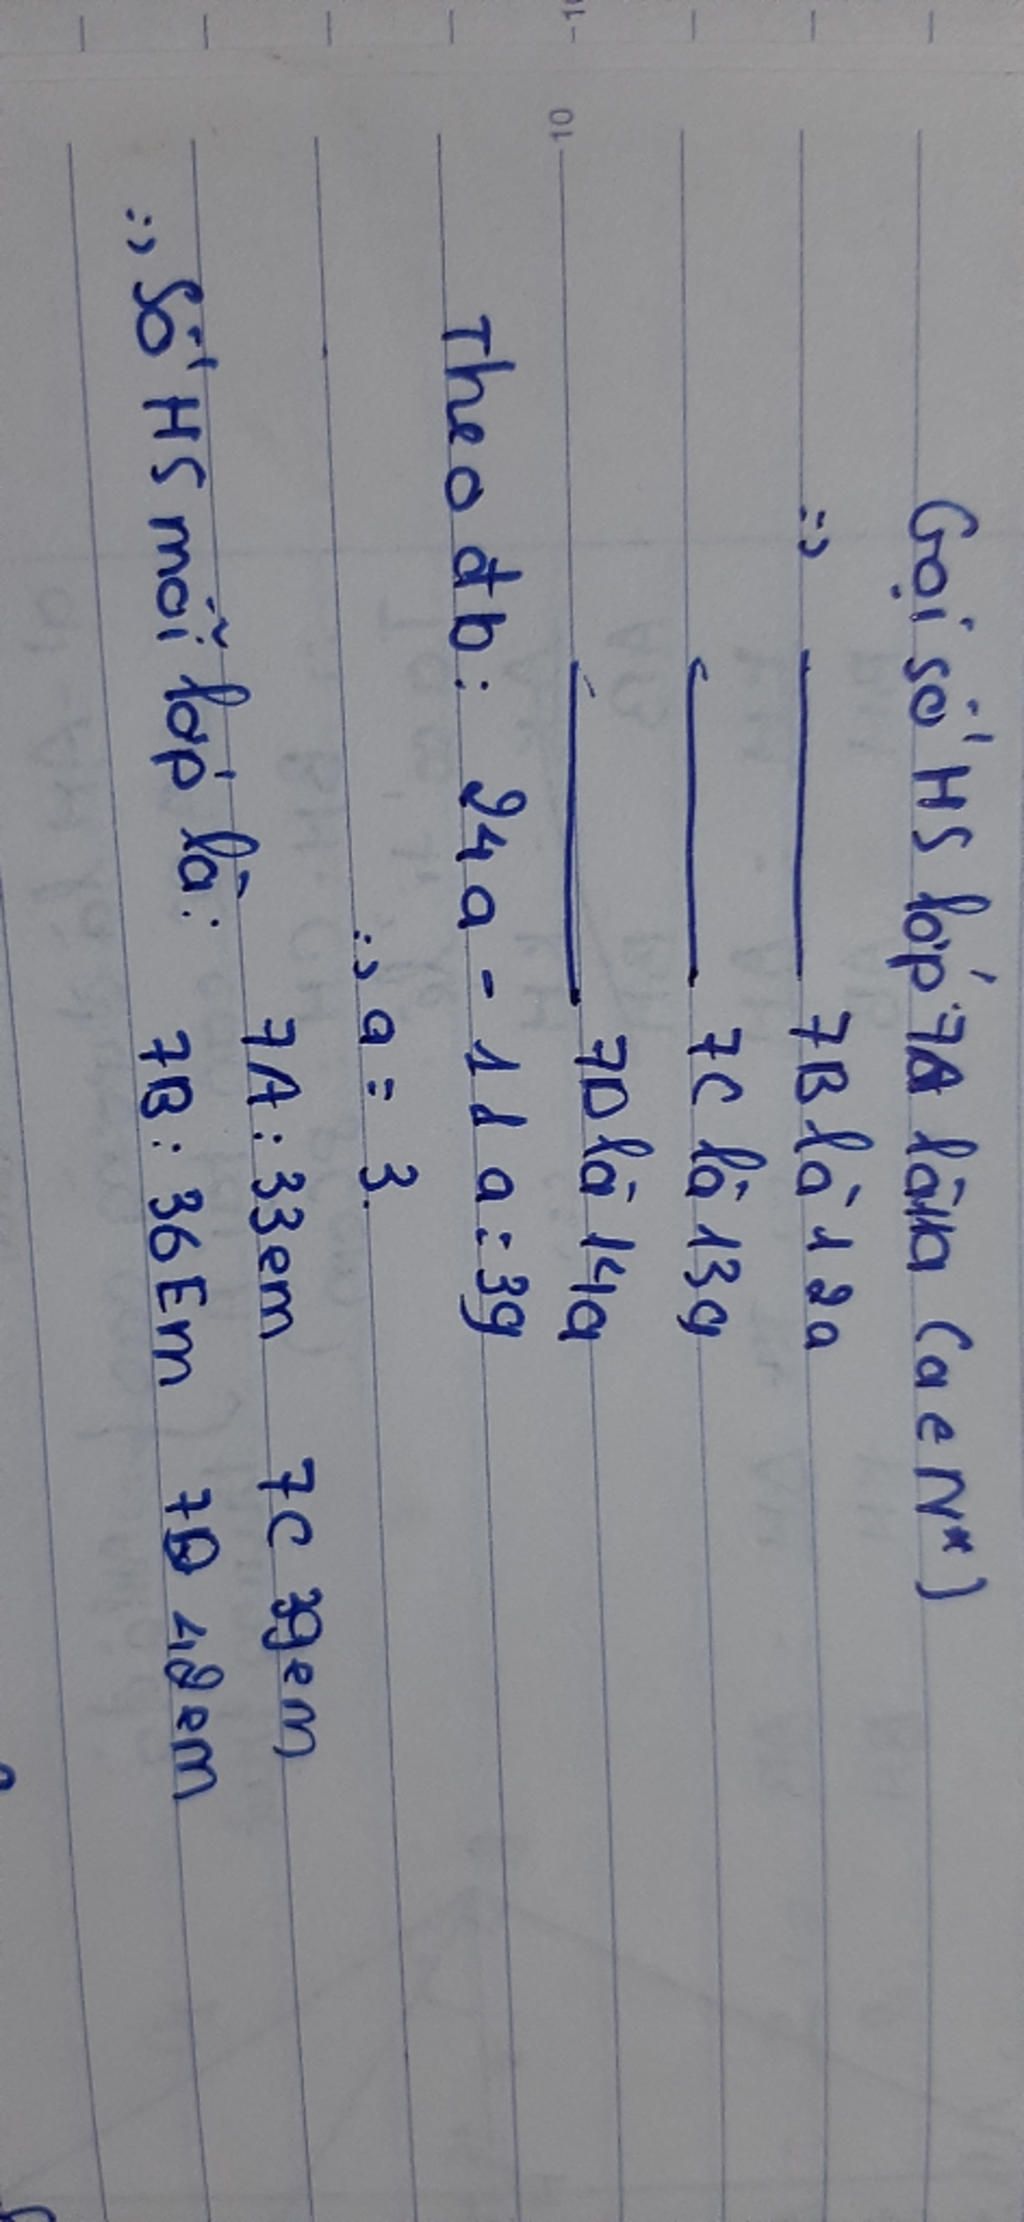 Gọi số HS lớp 7A là 11a (a e N*)
=> 7B là 12a
7C là 13a
7D là 14a
Theo đb: 24a - 11a = 39
=> a = 3.
=> Số HS mỗi lớp là: 7A: 33em 7C 39em
7B: 36Em 7D 42em
10